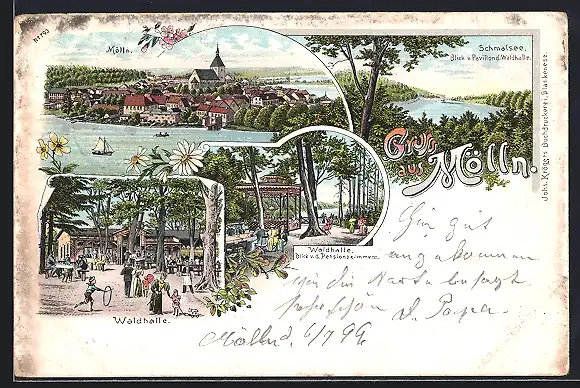 No 793
Mölln.
Schmalsee.
Blick v. Pavillon d. Waldhalle.
Gruß
aus
Mölln.
Waldhalle.
Blick v. d. Pensionszimmern.
Waldhalle.
Joh. Krögers Buchdruckerei, Blankenese.
Hier gut
angekommen
die Karte besagt
sehr schön d. Papa.
Mölln d. 6/7 99.